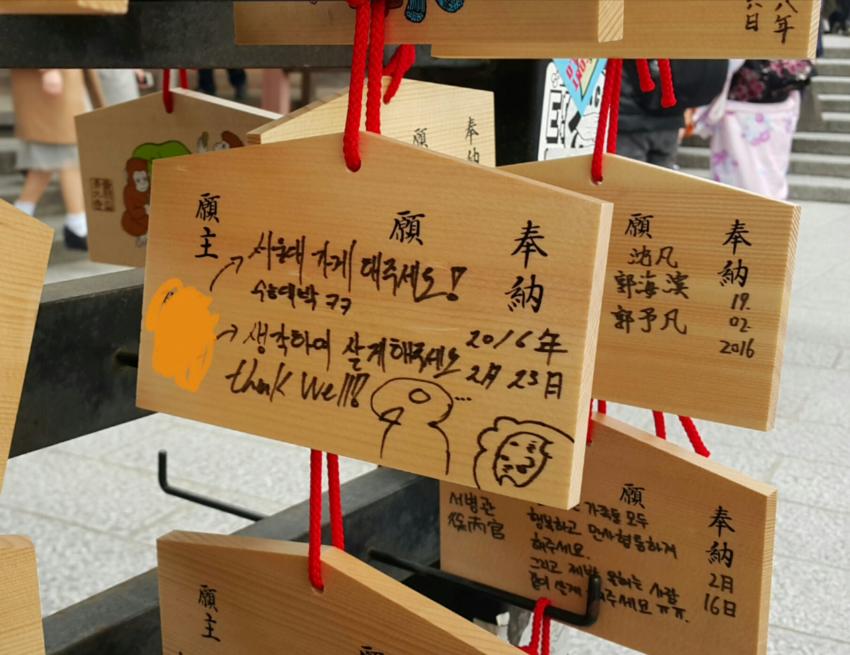 八年
六日
願
奉納
願主
願
奉納
서울대 가게 대주세요!
수능대박 ㅋㅋ
생각하며 살게해주세요
think well!!
2016年
2月 23日
願
奉納
沈凡
郭海滨
郭予凡
19.
02.
2016
願
奉納
서병관
徐丙官
가족들 모두
행복하고 만사형통하게
해주세요.
그리고 제발 원하는 사람
주세요 ㅠㅠ.
2月
16日
願主